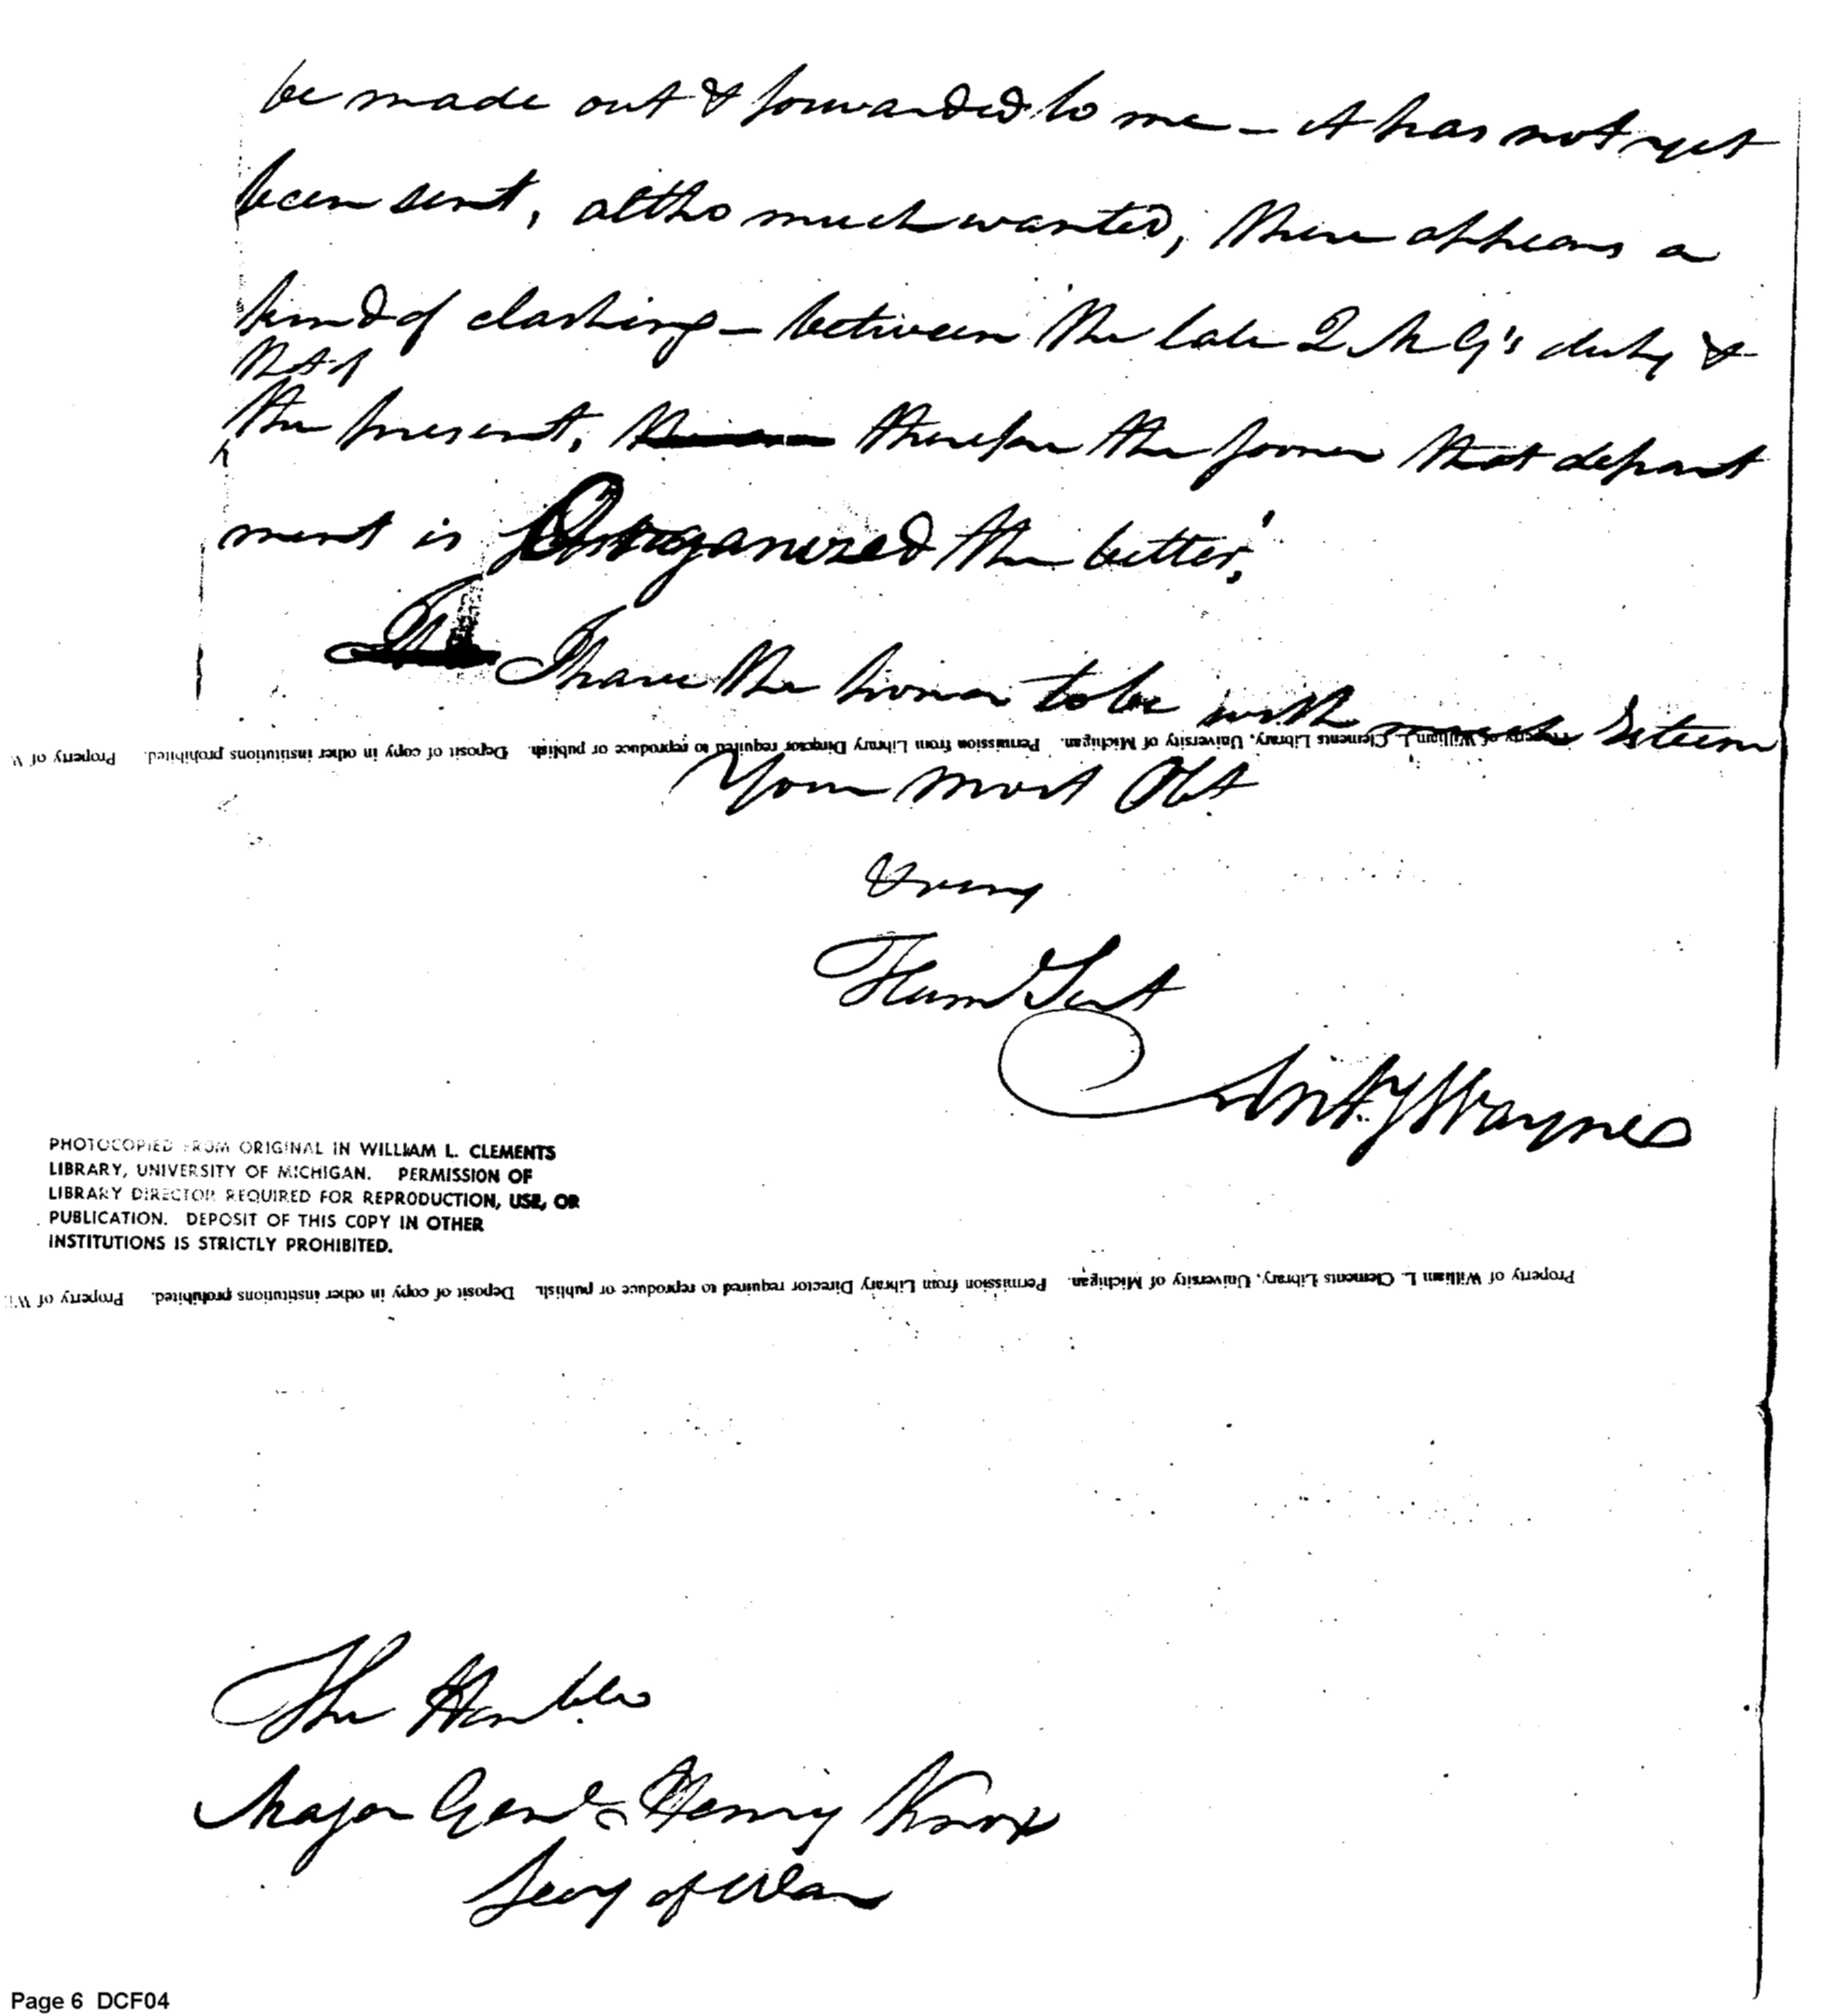 be made out & forwarded to me - it has not yet
been sent, altho much wanted, there appears a
kind of clashing - between the late Q M G's duty &
that of
the present, therefore the former that depart
ment is Organized the better,
I have the honor to be with much Esteem
Property of William L. Clements Library, University of Michigan. Permission from Library Director required to reproduce or publish. Deposit of copy in other institutions prohibited. Property of W
Your most Obt
& very
Hum Sert
Anty Wayne
PHOTOCOPIED FROM ORIGINAL IN WILLIAM L. CLEMENTS
LIBRARY, UNIVERSITY OF MICHIGAN. PERMISSION OF
LIBRARY DIRECTOR REQUIRED FOR REPRODUCTION, USE, OR
PUBLICATION. DEPOSIT OF THIS COPY IN OTHER
INSTITUTIONS IS STRICTLY PROHIBITED.
Property of William L. Clements Library, University of Michigan. Permission from Library Director required to reproduce or publish. Deposit of copy in other institutions prohibited. Property of Wi
The Honble
Major Genl Henry Knox
Secy of War
Page 6 DCF04